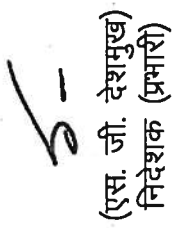 ह/-
(एस. जी. देशमुख)
निदेशक (प्रभारी)